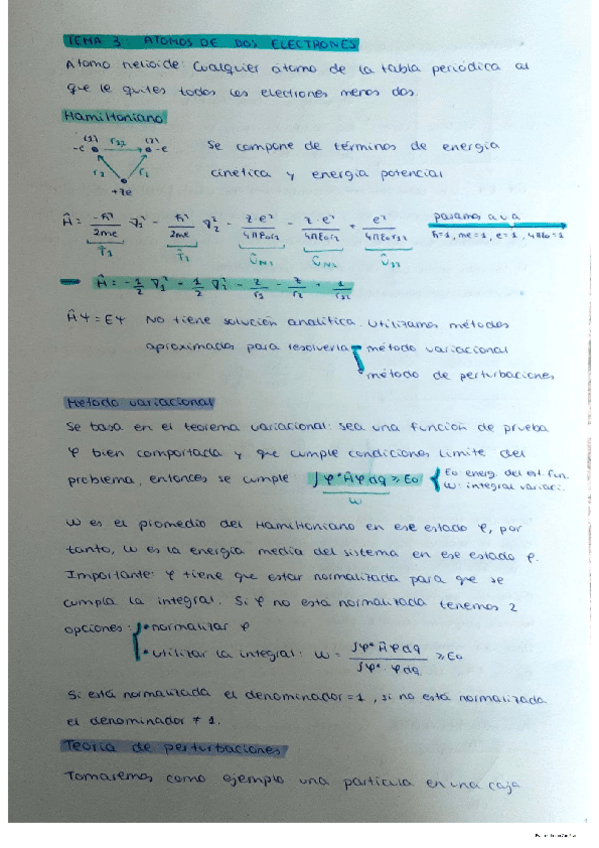 TEMA 3: ATOMOS DE DOS ELECTRONES
Atomo helioide: Cualquier átomo de la tabla periódica al
que le quites todos los electrones menos dos.
Hamiltoniano
(1) r12 (2)
-e -e
r2 r1
+ze
Se compone de términos de energía
cinética y energía potencial
Ĥ = -ħ²/2me ∇1² - ħ²/2me ∇2² - z·e²/4πε0r1 - z·e²/4πε0r2 + e²/4πε0r12 pasamos a u.a
ħ=1, me=1, e=1, 4πε0=1
T̂1 T̂2 ÛN1 ÛN2 Û12
Ĥ = -1/2 ∇1² - 1/2 ∇2² - z/r1 - z/r2 + 1/r12
Ĥψ = Eψ No tiene solución analítica. Utilizamos métodos
aproximados para resolverla método variacional
método de perturbaciones
Metodo variacional
Se basa en el teorema variacional: sea una función de prueba
φ bien comportada y que cumple condiciones límite del
problema, entonces se cumple ∫φ*Ĥφdq ≥ E0 E0 energ. del est. fun.
w: integral variaci.
w
w es el promedio del Hamiltoniano en ese estado φ, por
tanto, w es la energía media del sistema en ese estado φ.
Importante: φ tiene que estar normalizada para que se
cumpla la integral. Si φ no está normalizada tenemos 2
opciones: • normalizar φ
• utilizar la integral: w = ∫φ*Ĥφdq / ∫φ*·φdq ≥ E0
Si está normalizada el denominador = 1, si no está normalizada
el denominador ≠ 1.
Teoría de perturbaciones
Tomaremos como ejemplo una partícula en una caja